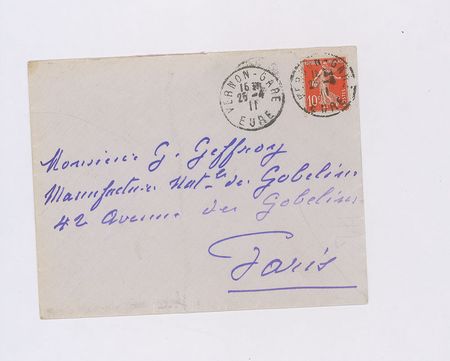 VERNON-GARE
16
25-4
11
EURE
10
Monsieur G. Geffroy
Manufacture Natle des Gobelins
42 Avenue des Gobelins
Paris